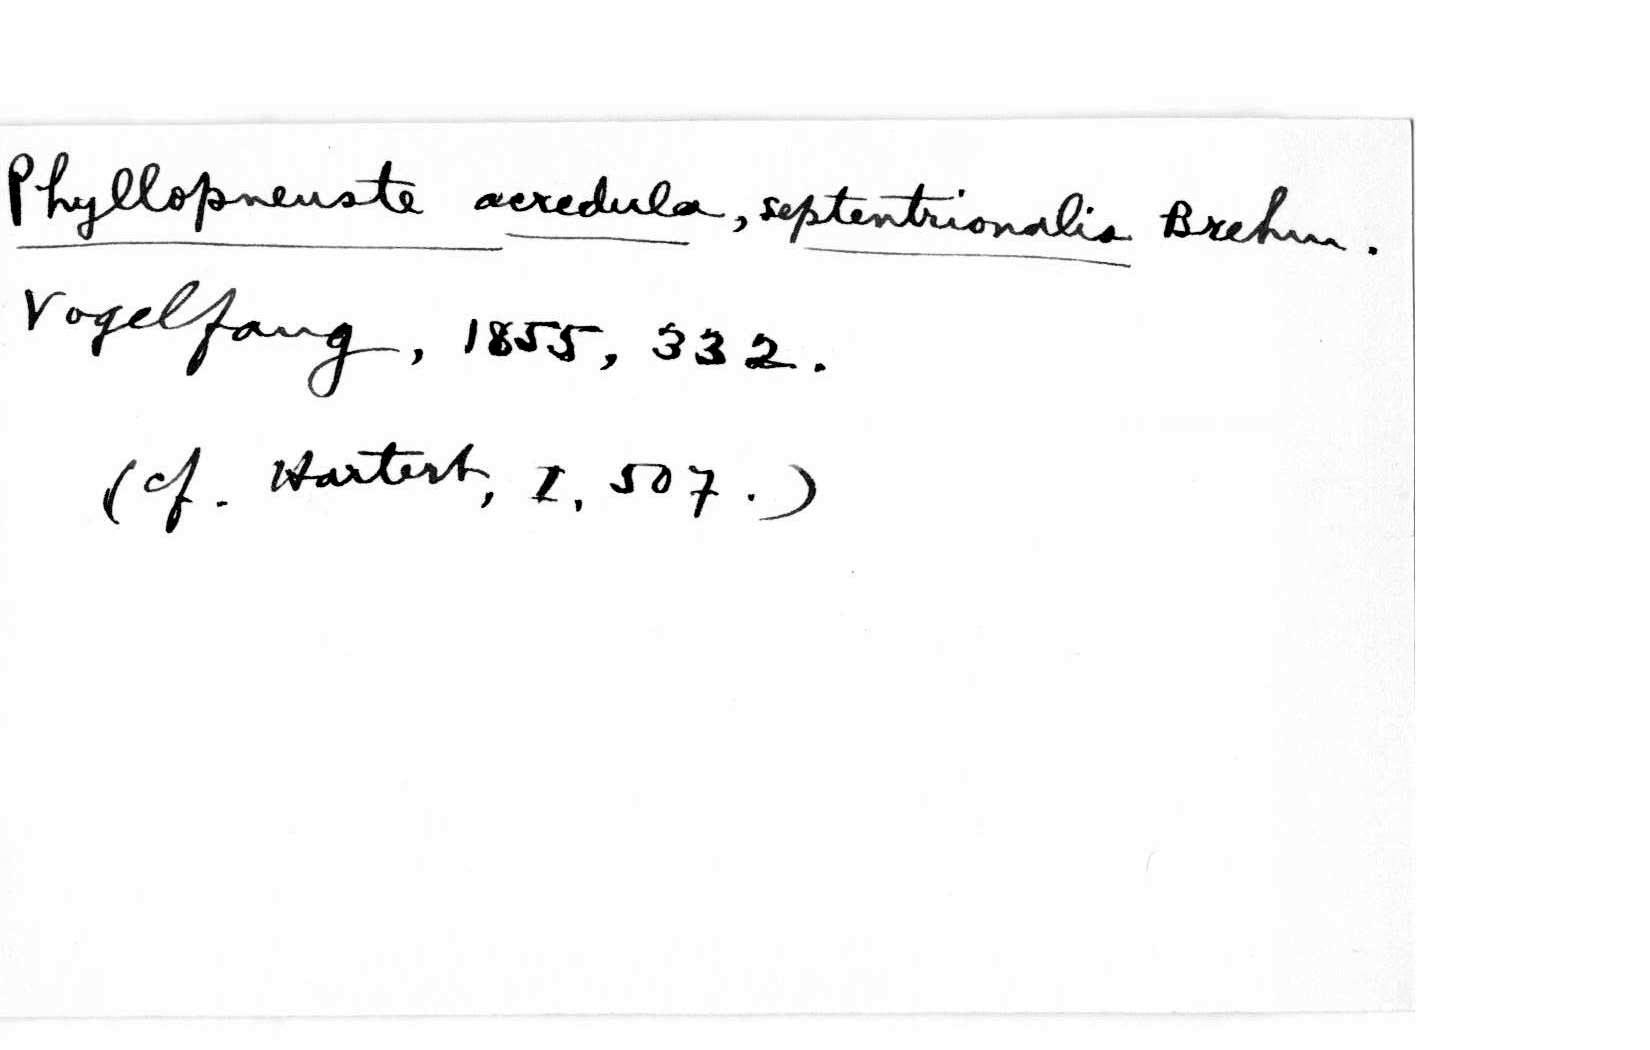 Phyllopneuste acredula, septentrionalis Brehm.
Vogelfang, 1855, 332.
(cf. Hartert, I, 507.)